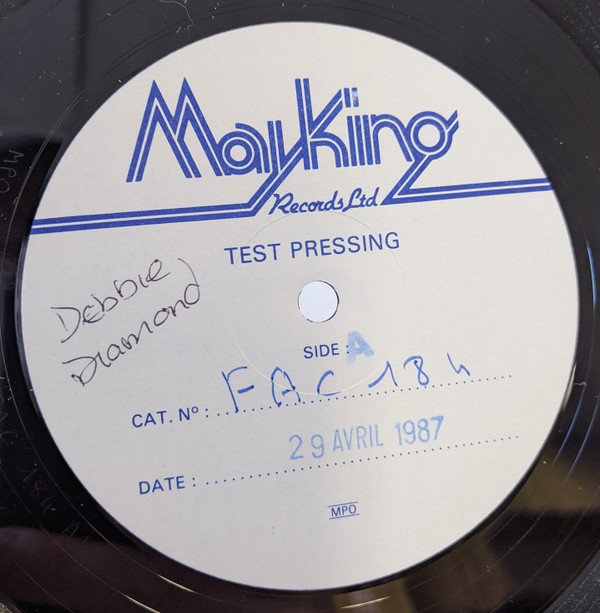 MayKing
Records Ltd
TEST PRESSING
Debbie
Diamond
SIDE : A
CAT. Nº : FAC 184
29 AVRIL 1987
DATE :
MPO
MPO